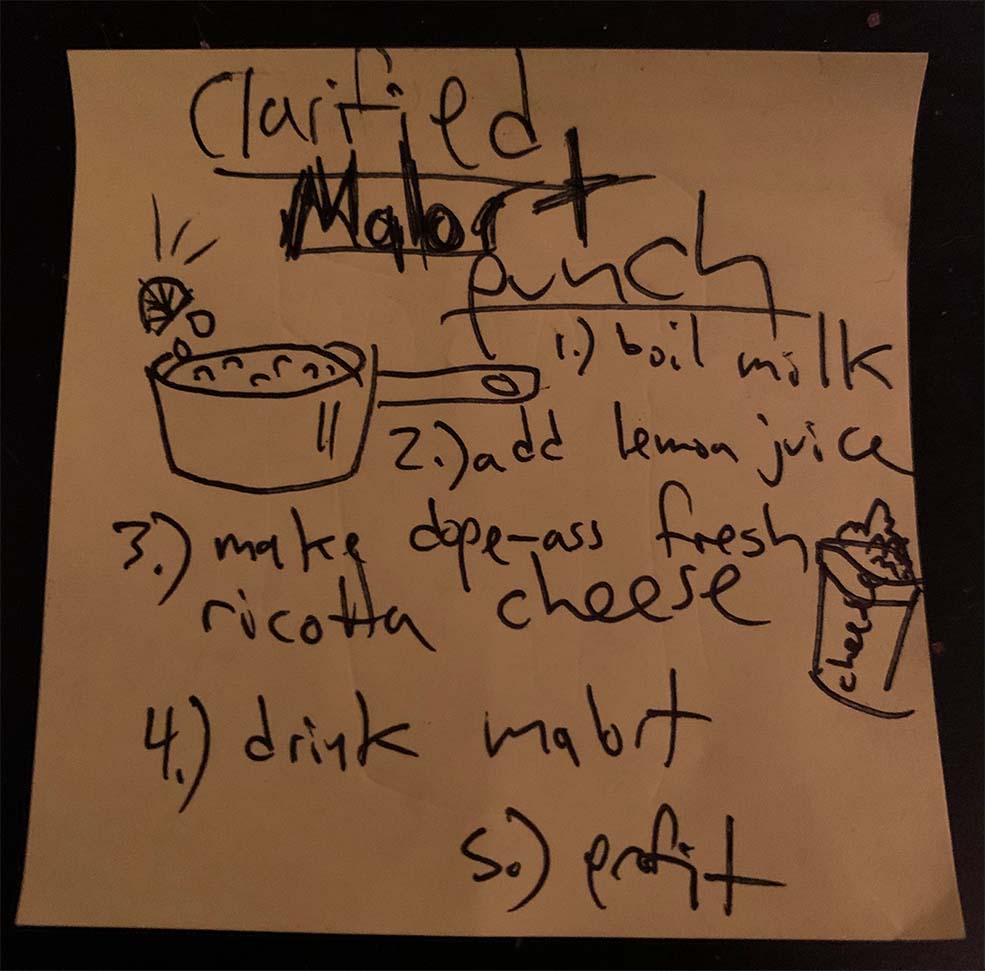 Clarified
Malort
punch
1.) boil milk
2.) add lemon juice
3.) make dope-ass fresh
ricotta cheese
cheese
4.) drink malort
5.) profit